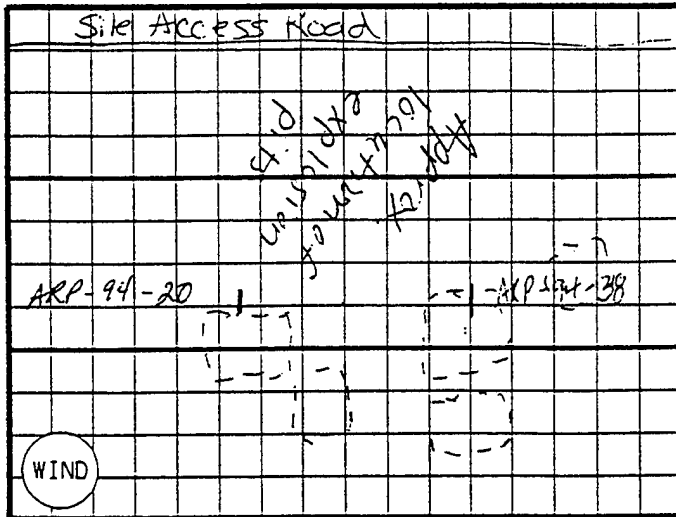 Site Access Road
Approx
location of
explosion
pits
ARP-94-20
WIND